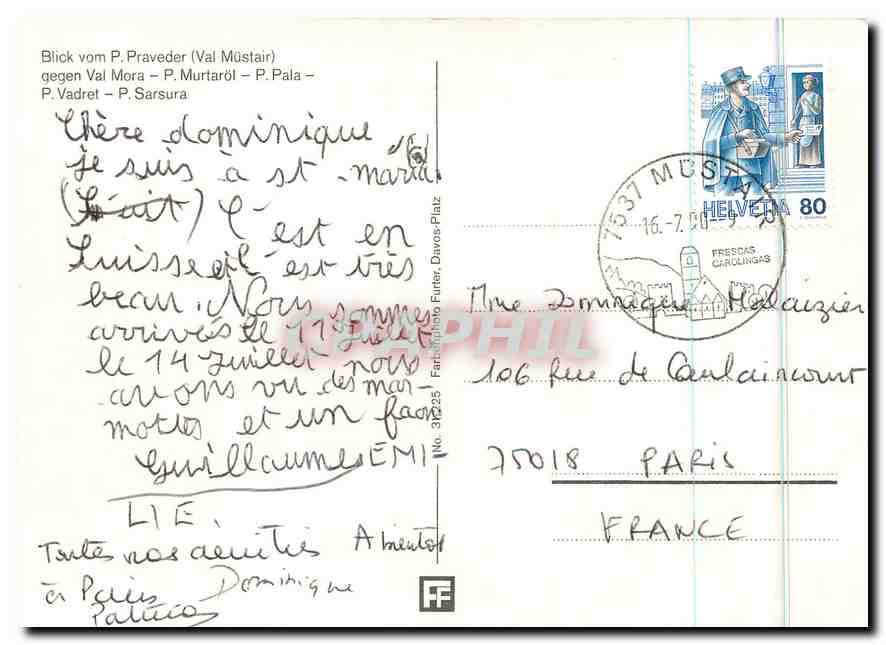 Blick vom P. Praveder (Val Müstair)
gegen Val Mora – P. Murtaröl – P. Pala –
P. Vadret – P. Sarsura
Chère dominique
je suis à st - maria
(s'ait) C'
est en
Suisse il est très
beau. Nous sommes
arrivés le 11 Juillet
le 14 Juillet nous
avons vu des mar-
mottes et un faon
Guillaume EMI-
LIE.
Toutes nos amitiés A bientôt
à Paris Dominique
No. 31 225 Farbenphoto Furter, Davos-Platz
FF
HELVETIA 80
7537 MÜSTAIR
16.-7.90--9
FRESCAS
CAROLINGAS
Mme Dominique Malaizier
106 Rue de Caulaincourt
75018 PARIS
FRANCE
CPAPHIL